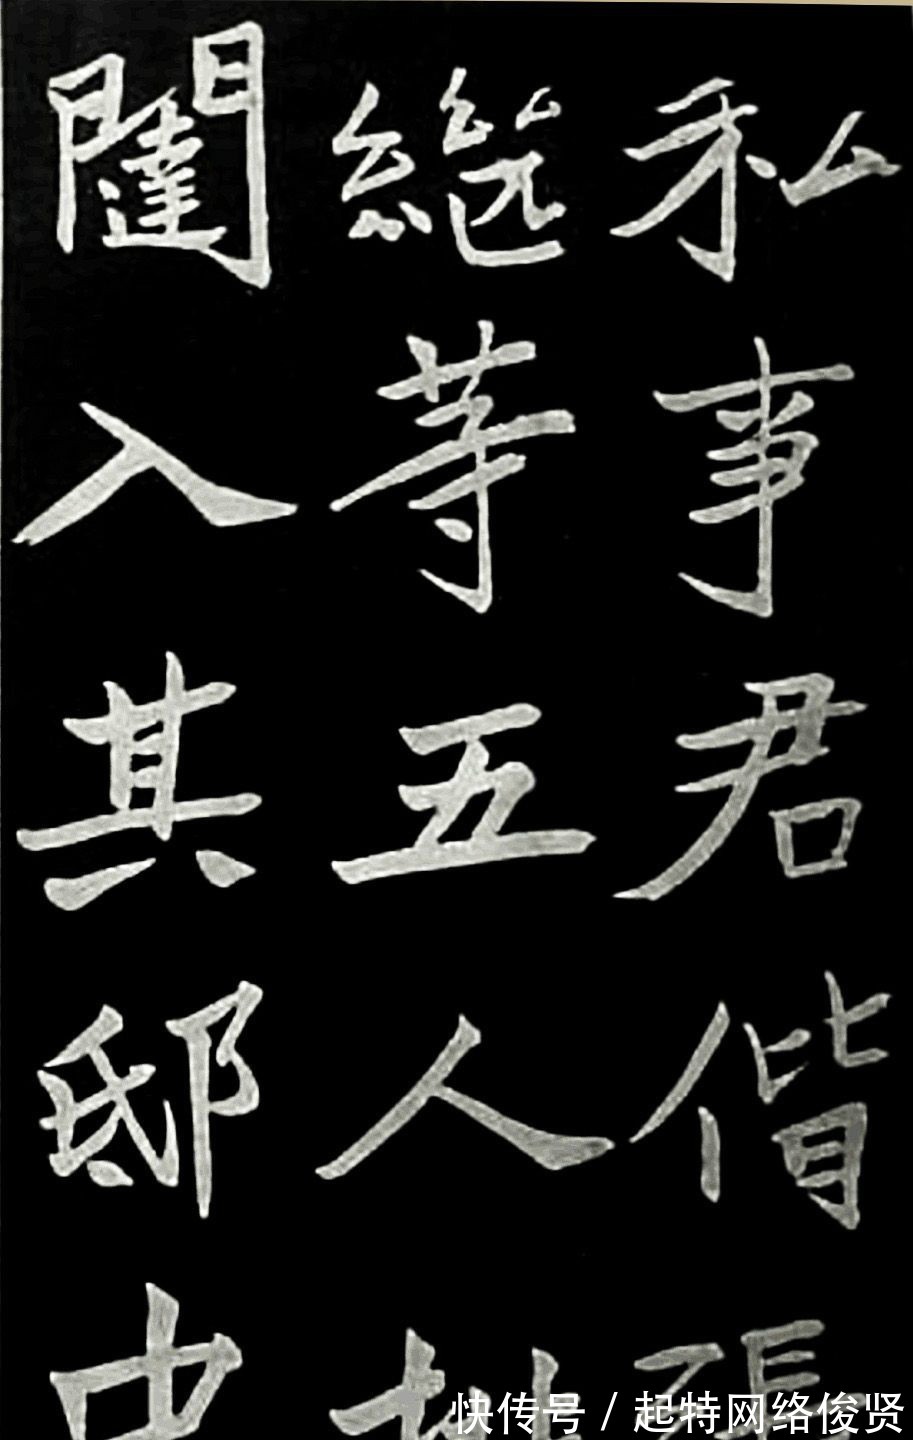 私事君偕張
継等五人排
闥入其邸中
快传号 / 起特网络俊贤